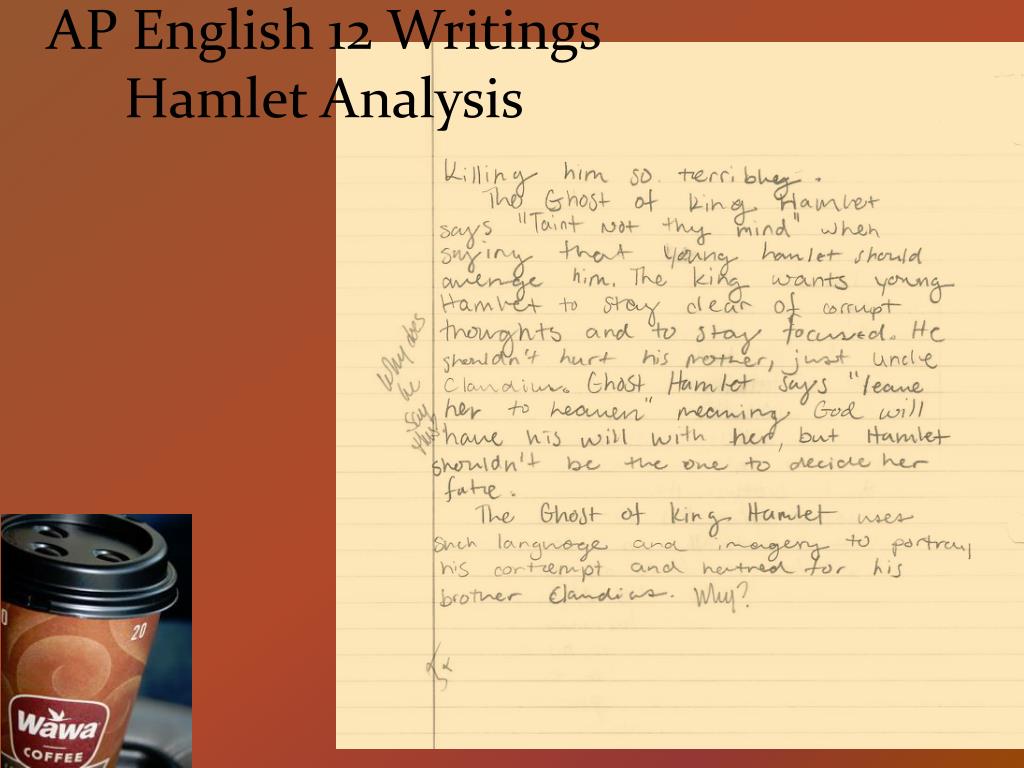 AP English 12 Writings
Hamlet Analysis
Killing him so terribley.
The Ghost of King Hamlet
says "Taint not thy mind" when
saying that young hamlet should
avenge him. The king wants young
Hamlet to stay clear of corrupt
thoughts and to stay focused. He
shouldn't hurt his mother, just uncle
Claudius. Ghost Hamlet says "leave
her to heaven" meaning God will
have his will with her, but Hamlet
shouldn't be the one to decide her
fate.
The Ghost of King Hamlet uses
such language and imagery to portray
his contempt and hatred for his
brother Claudius. Why?
Why does
he
say
this?
20
Wawa
COFFEE